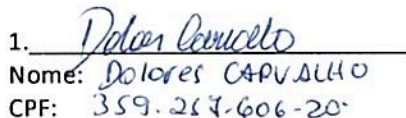 1. Dolores Carvalho
Nome: Dolores CARVALHO
CPF: 359.257.606-20